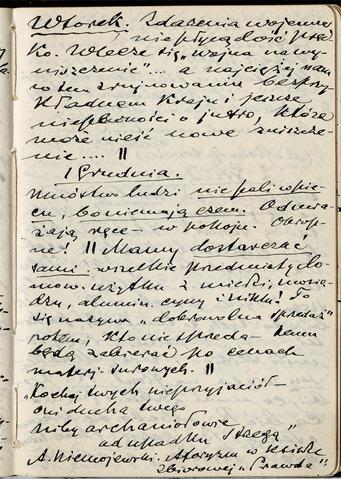 Wtorek. Zdarzenia wojenne
nie płyną dość
ko. Wlecze się „wojna na wy-
niszczenie".... a najciężej nam
w tem zrujnowaniu bezprzy-
kładnem kraju i jeszcze
niepewności o jutro, które
może nieść nowe zniszcze-
nie.... ||
1 Grudnia.
Mnóstwo ludzi nie pali w pie-
cu, bo nie mają czem. Odmra-
żają ręce - w pokoju. Okrop-
ne! || Mamy dostarczać
sami wszelkie przedmioty do-
mow. użytku z miedzi, mosią-
dzu, alumin. cyny i niklu! To
się nazywa „dobrowolna sprzedaż"
potem, kto nie sprzeda - temu
będą zabierać po cenach
materj. surowych. ||
„Kochaj twych nieprzyjaciół -
oni ducha twego
niby archaniołowie
od upadku strzegą"
A. Niemojewski. Aforyzm w książce
zbiorowej „Prawda"